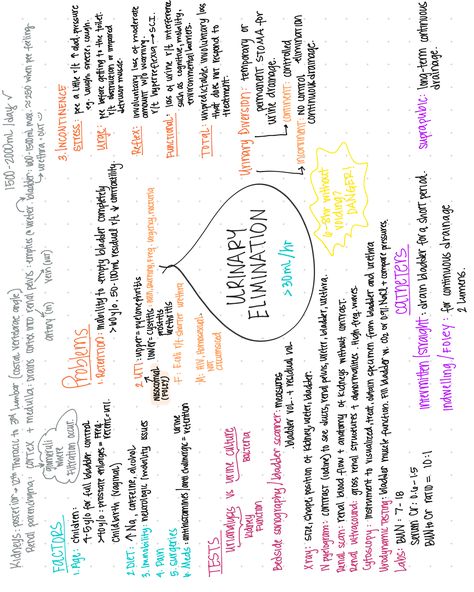 Kidneys: posterior → 12th thoracic to 3rd lumbar (costal vertebrae angle)
Renal parenchyma: cortex + medulla: drains onto into renal pelvis → empties → ureter
1500-2000mL/day
generally where filtration occur
artery (in) vein (out)
urethra = out
FACTORS
1. Age: children:
4-5y/o for full bladder control
>50y/o: prostate enlarges = freq.
childbirth (vaginal)
2. DIET: ↑Na, caffeine, alcohol
3. Immobility: neurologic/mobility issues
4. Pain
5. Surgeries
6. Meds: antihistamines/anti cholinergic = urine retention
Problems
1. Retention: inability to empty bladder completely
50-100mL residual r/t ↓ contractility
2. UTI: upper = pyelonephritis
lower = cystitis
urethritis
pain, burning, freq, urgency, nocturia
nosocomial
F: E.coli r/t shorter urethra
M: HIV, Homosexual
not circumcised
3. INCONTINENCE
STRESS: pee a little r/t ↑ abd. pressure
eg. laugh, sneeze, cough.
Urge: pee before getting to the toilet.
r/t obstruction or impaired
detrusor muscle.
Reflex: involuntary loss of moderate
amount w/o warning.
r/t hyperreflexia → S.C.I.
Functional: loss of urine r/t interference
such as cognitive, mobility,
environmental barriers.
TOTAL: unpredictable involuntary loss
that does not respond to
treatment.
Urinary Diversion: temporary or
permanent STOMA for
urine drainage.
continent: controlled
incontinent: no control elimination
continuous drainage.
URINARY
ELIMINATION
>30mL/hr
without voiding?
DANGER!
TESTS
Urinalysis vs urine culture
kidney function
bacteria
Bedside sonography/bladder scanner: measures
bladder vol. + residual vol.
X ray: size, shape, position of kidney, ureter, bladder.
IV pyelogram: contrast (kidney) to see ducts, renal pelvis, ureter, bladder, urethra.
Renal scan: renal blood flow + anatomy of kidneys without contrast.
Renal ultrasound: gross renal structures + abnormalities. High freq. waves
Cytoscopy: instrument to visualized, treat, obtain specimen from bladder and urethra
Urodynamic Testing: bladder muscle function. Fill bladder w. CO2 or
compare pressures.
Labs: BUN: 7-18
Serum Cr: 0.6-1.5
BUN to Cr ratio = 10:1
Catheters
intermitten/straight: drain bladder for a short period.
Indwelling/Foley: for continuous drainage
2 lumens.
suprapubic: long-term continuous
drainage.